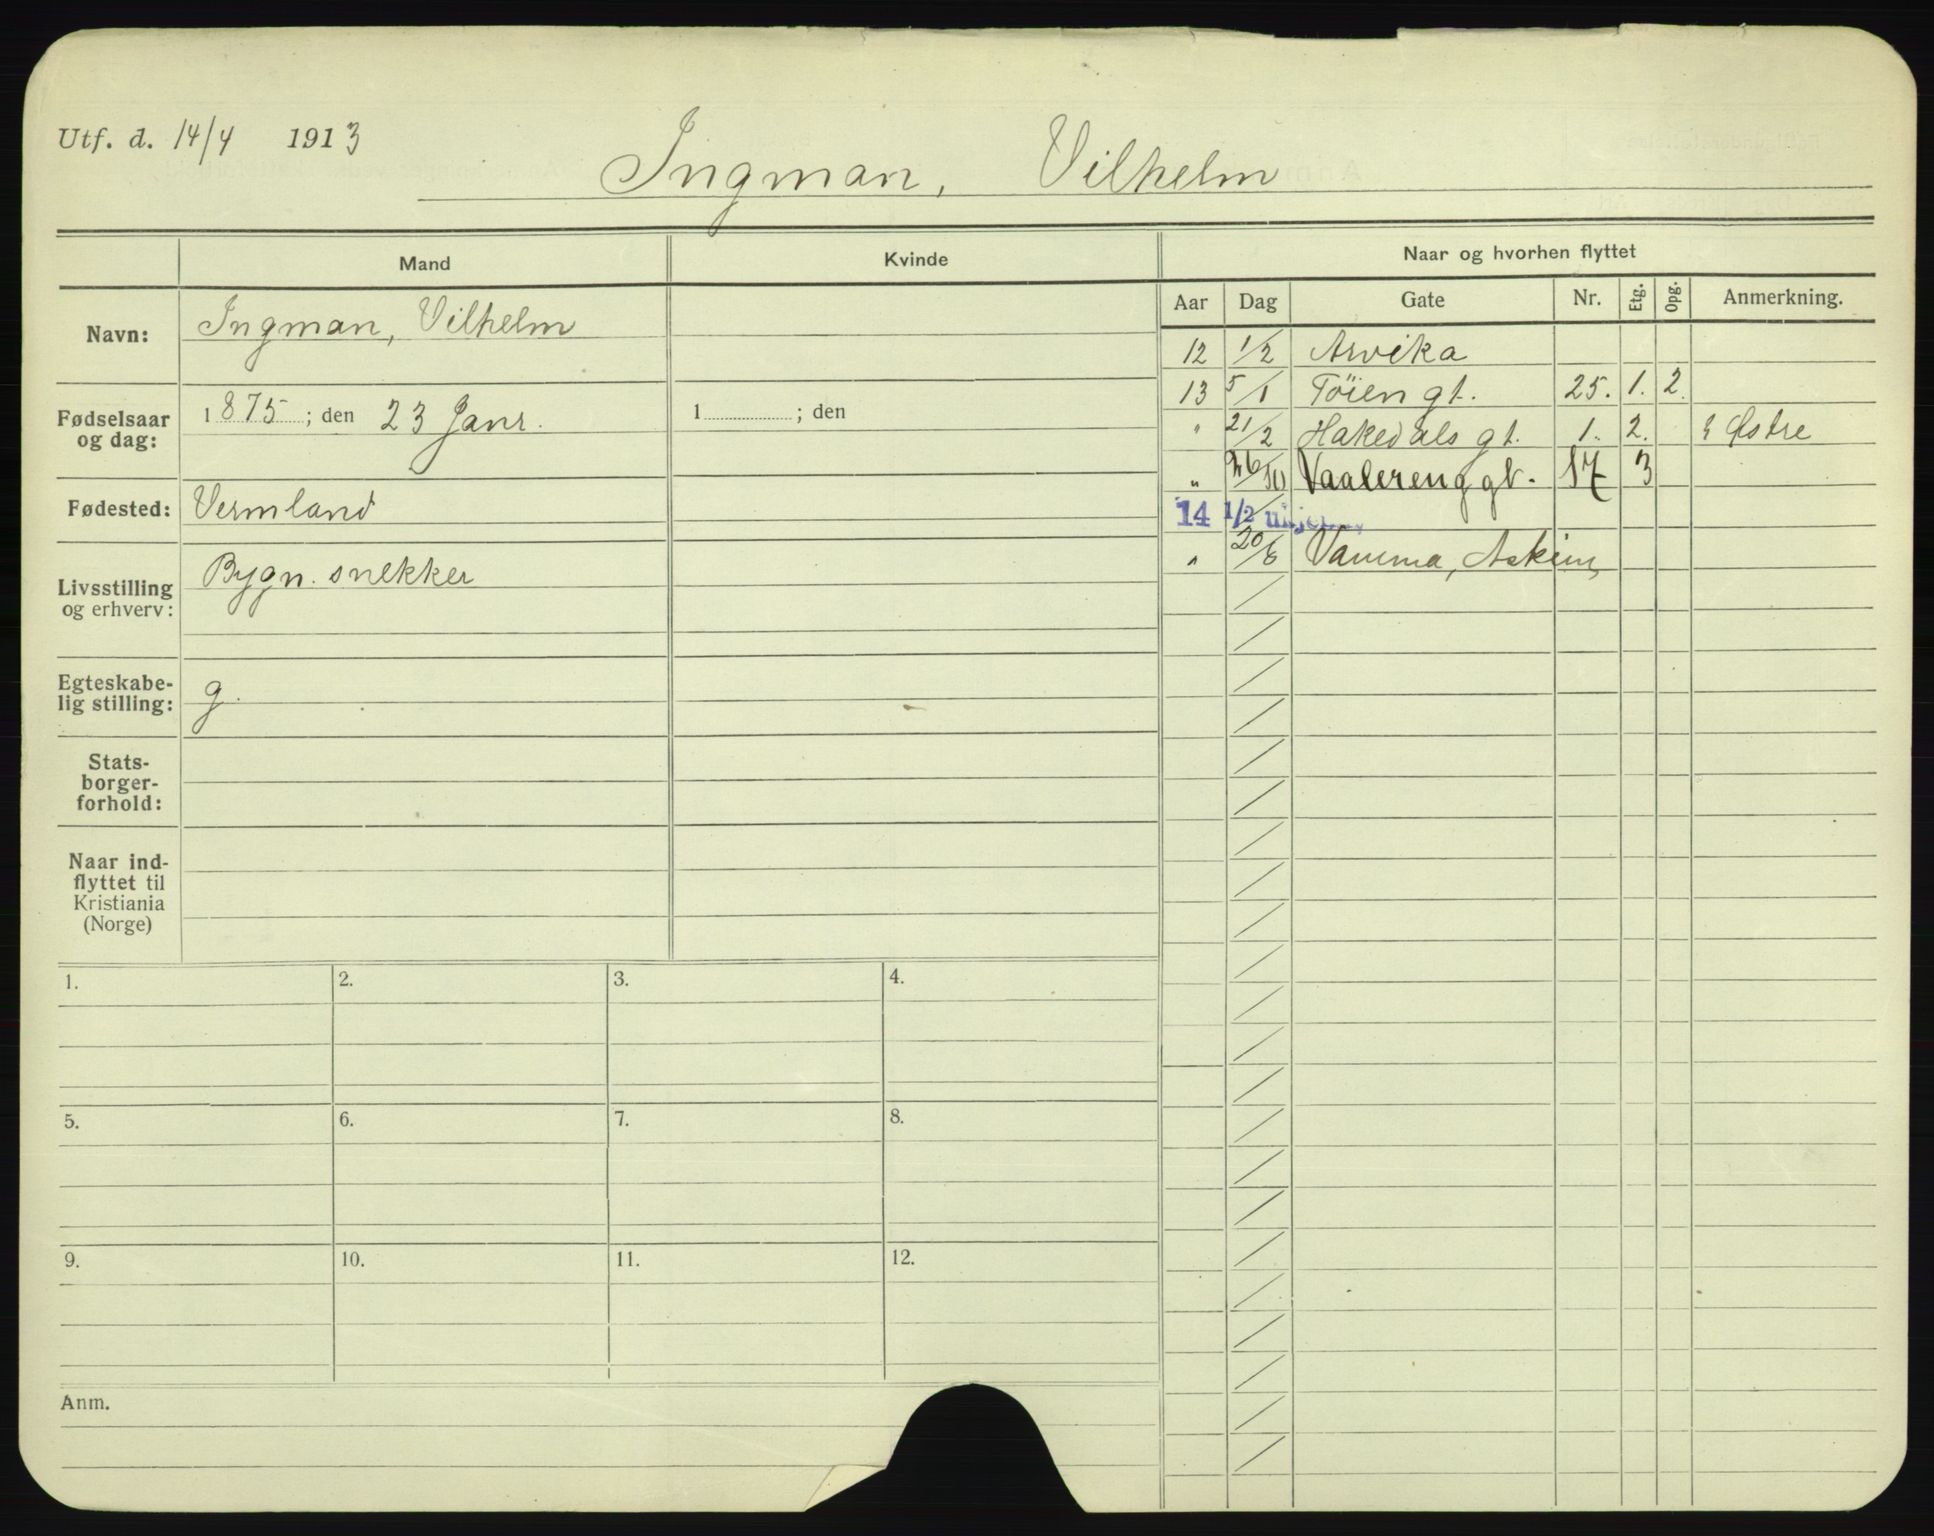 Utf. d. 14/4 1913
Ingman, Vilhelm
Mand
Kvinde
Naar og hvorhen flyttet
Aar Dag Gate Nr. Etg. Opg. Anmerkning.
Navn: Ingman, Vilhelm
Fødselsaar og dag: 1875; den 23 Janr. 1 ; den
Fødested: Vermland
Livsstilling og erhverv: Bygn. snekker
Egteskabe-
lig stilling: g.
Stats-
borger-
forhold:
Naar ind-
flyttet til
Kristiania
(Norge)
12 1/2 Arvika
13 5/1 Töien gt. 25. 1. 2.
" 21/2 Hakedals gt. 1. 2. Østre
" 26/10 Vaalereng gt. 17 3
14 1/2 ukjent
" 20/6 Vamma, Askim
1. 2. 3. 4.
5. 6. 7. 8.
9. 10. 11. 12.
Anm.